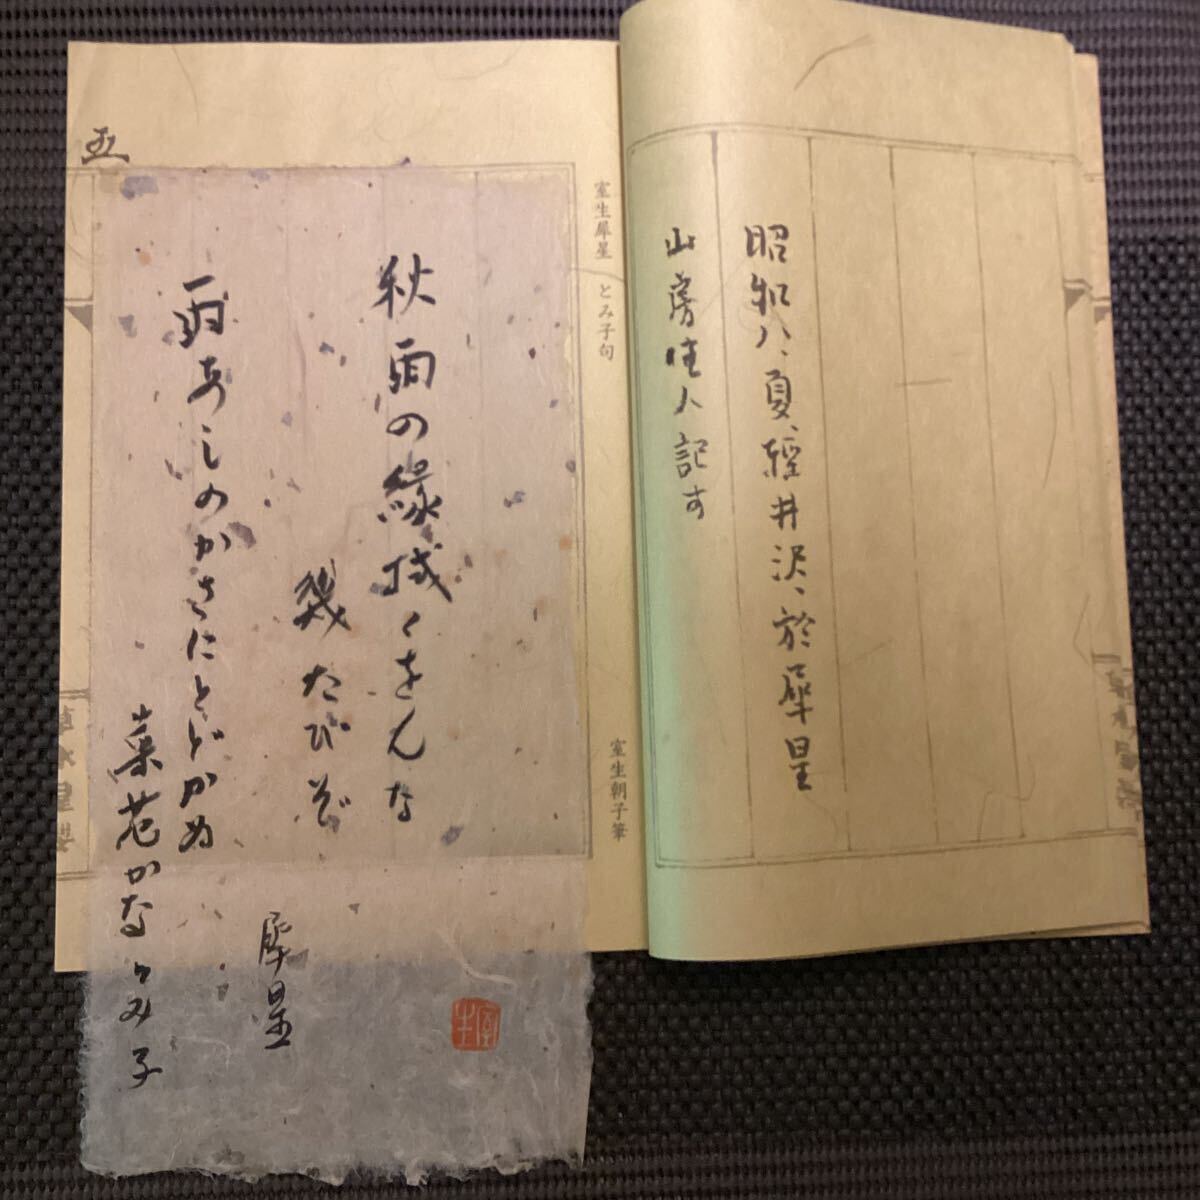 昭和八、夏、輕井沢、於犀星
山房住人記す
室生犀星 とみ子句
室生朝子筆
秋雨の縁拭くをんな
幾たびぞ
犀星
雨あしのかさにとどかぬ
菜花かな とみ子
五
室生